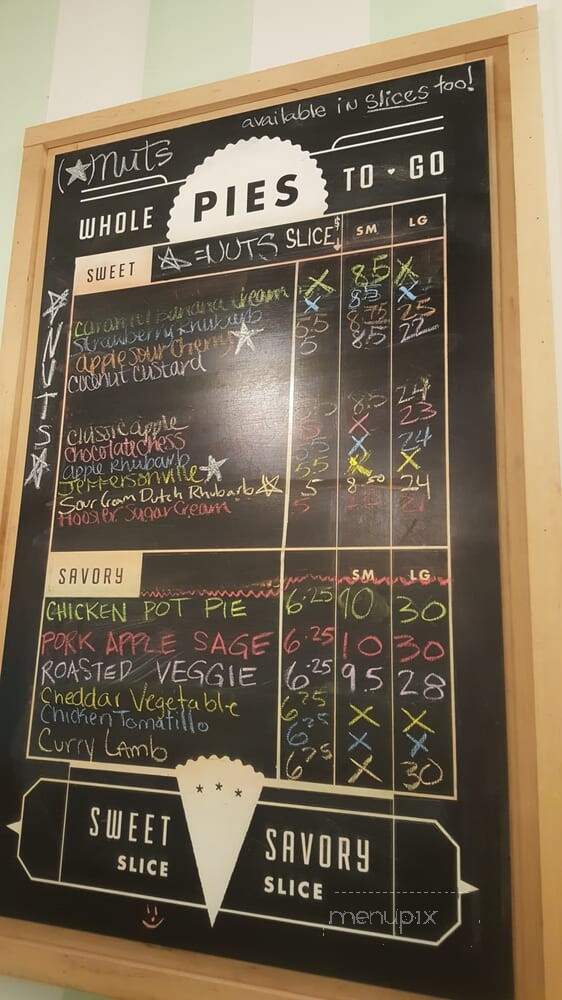 available in slices too!
(☆) nuts
WHOLE PIES TO GO
SWEET ☆=NUTS SLICE $ SM LG
☆ NUTS ☆
Caramel Banana Cream X 8.5 X
Strawberry Rhubarb X 8.5 X
Apple Sour Cherry ☆ 5.5 8.75 25
Coconut Custard 5 8.5 22
Classic Apple 8.5 24
Chocolate Chess X 23
Apple Rhubarb 5.5 X 24
Jeffersonville ☆ 5.5 X X
Sour Cream Dutch Rhubarb ☆ 5 8.50 24
Hoosier Sugar Cream 5
SAVORY SM LG
CHICKEN POT PIE 6.25 10 30
PORK APPLE SAGE 6.25 10 30
ROASTED VEGGIE 6.25 9.5 28
Cheddar Vegetable 6.25 X X
Chicken Tomatillo 6.25 X X
Curry Lamb 6.75 X 30
SWEET SLICE
SAVORY SLICE
menupix